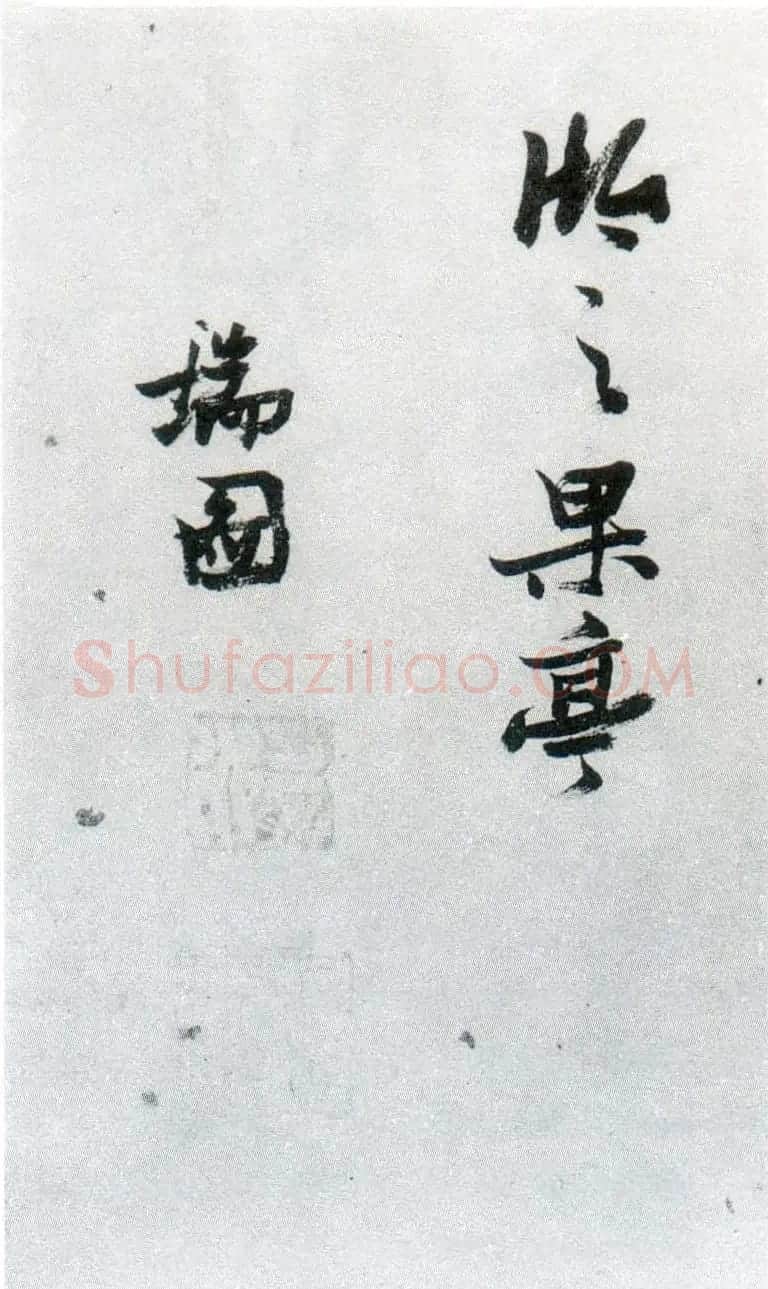 於之果亭
瑞圖
Shufaziliao.COM